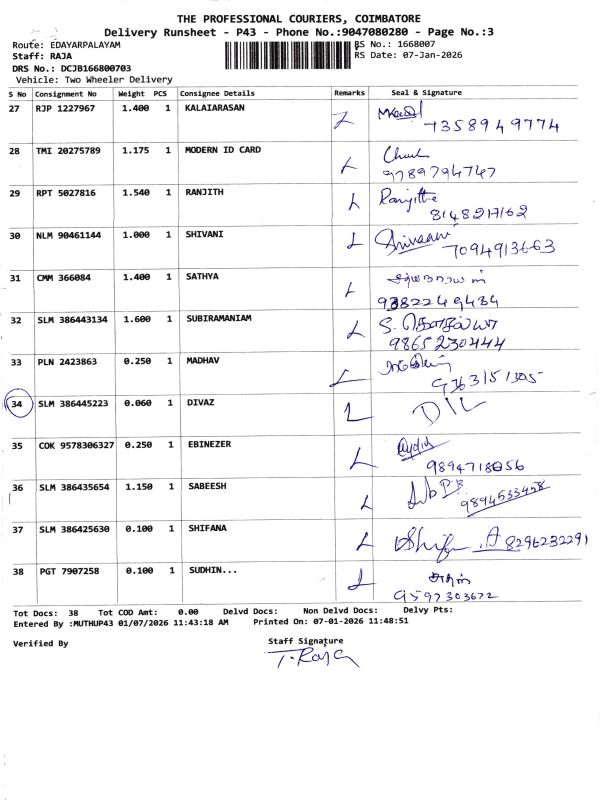 THE PROFESSIONAL COURIERS, COIMBATORE
Delivery Runsheet - P43 - Phone No.:9047080280 - Page No.:3
Route: EDAYARPALAYAM RS No.: 1668007
Staff: RAJA RS Date: 07-Jan-2026
DRS No.: DCJB166800703
Vehicle: Two Wheeler Delivery
S No Consignment No Weight PCS Consignee Details Remarks Seal & Signature
27 RJP 1227967 1.400 1 KALAIARASAN
7358949774
28 TMI 20275789 1.175 1 MODERN ID CARD
9789794767
29 RPT 5027816 1.540 1 RANJITH L Ranjitha
8148217162
30 NLM 90461144 1.000 1 SHIVANI L
7094913663
31 CMM 366084 1.400 1 SATHYA L
9382249434
32 SLM 386443134 1.600 1 SUBIRAMANIAM L
9865230444
33 PLN 2423863 0.250 1 MADHAV L
34 SLM 386445223 0.060 1 DIVAZ L D/L
35 COK 9578306327 0.250 1 EBINEZER L
9894718056
36 SLM 386435654 1.150 1 SABEESH L
9894533458
37 SLM 386425630 0.100 1 SHIFANA L 8296232291
38 PGT 7907258 0.100 1 SUDHIN... L
9597303672
Tot Docs: 38 Tot COD Amt: 0.00 Delvd Docs: Non Delvd Docs: Delvy Pts:
Entered By :MUTHUP43 01/07/2026 11:43:18 AM Printed On: 07-01-2026 11:48:51
Verified By Staff Signature
T. Raja